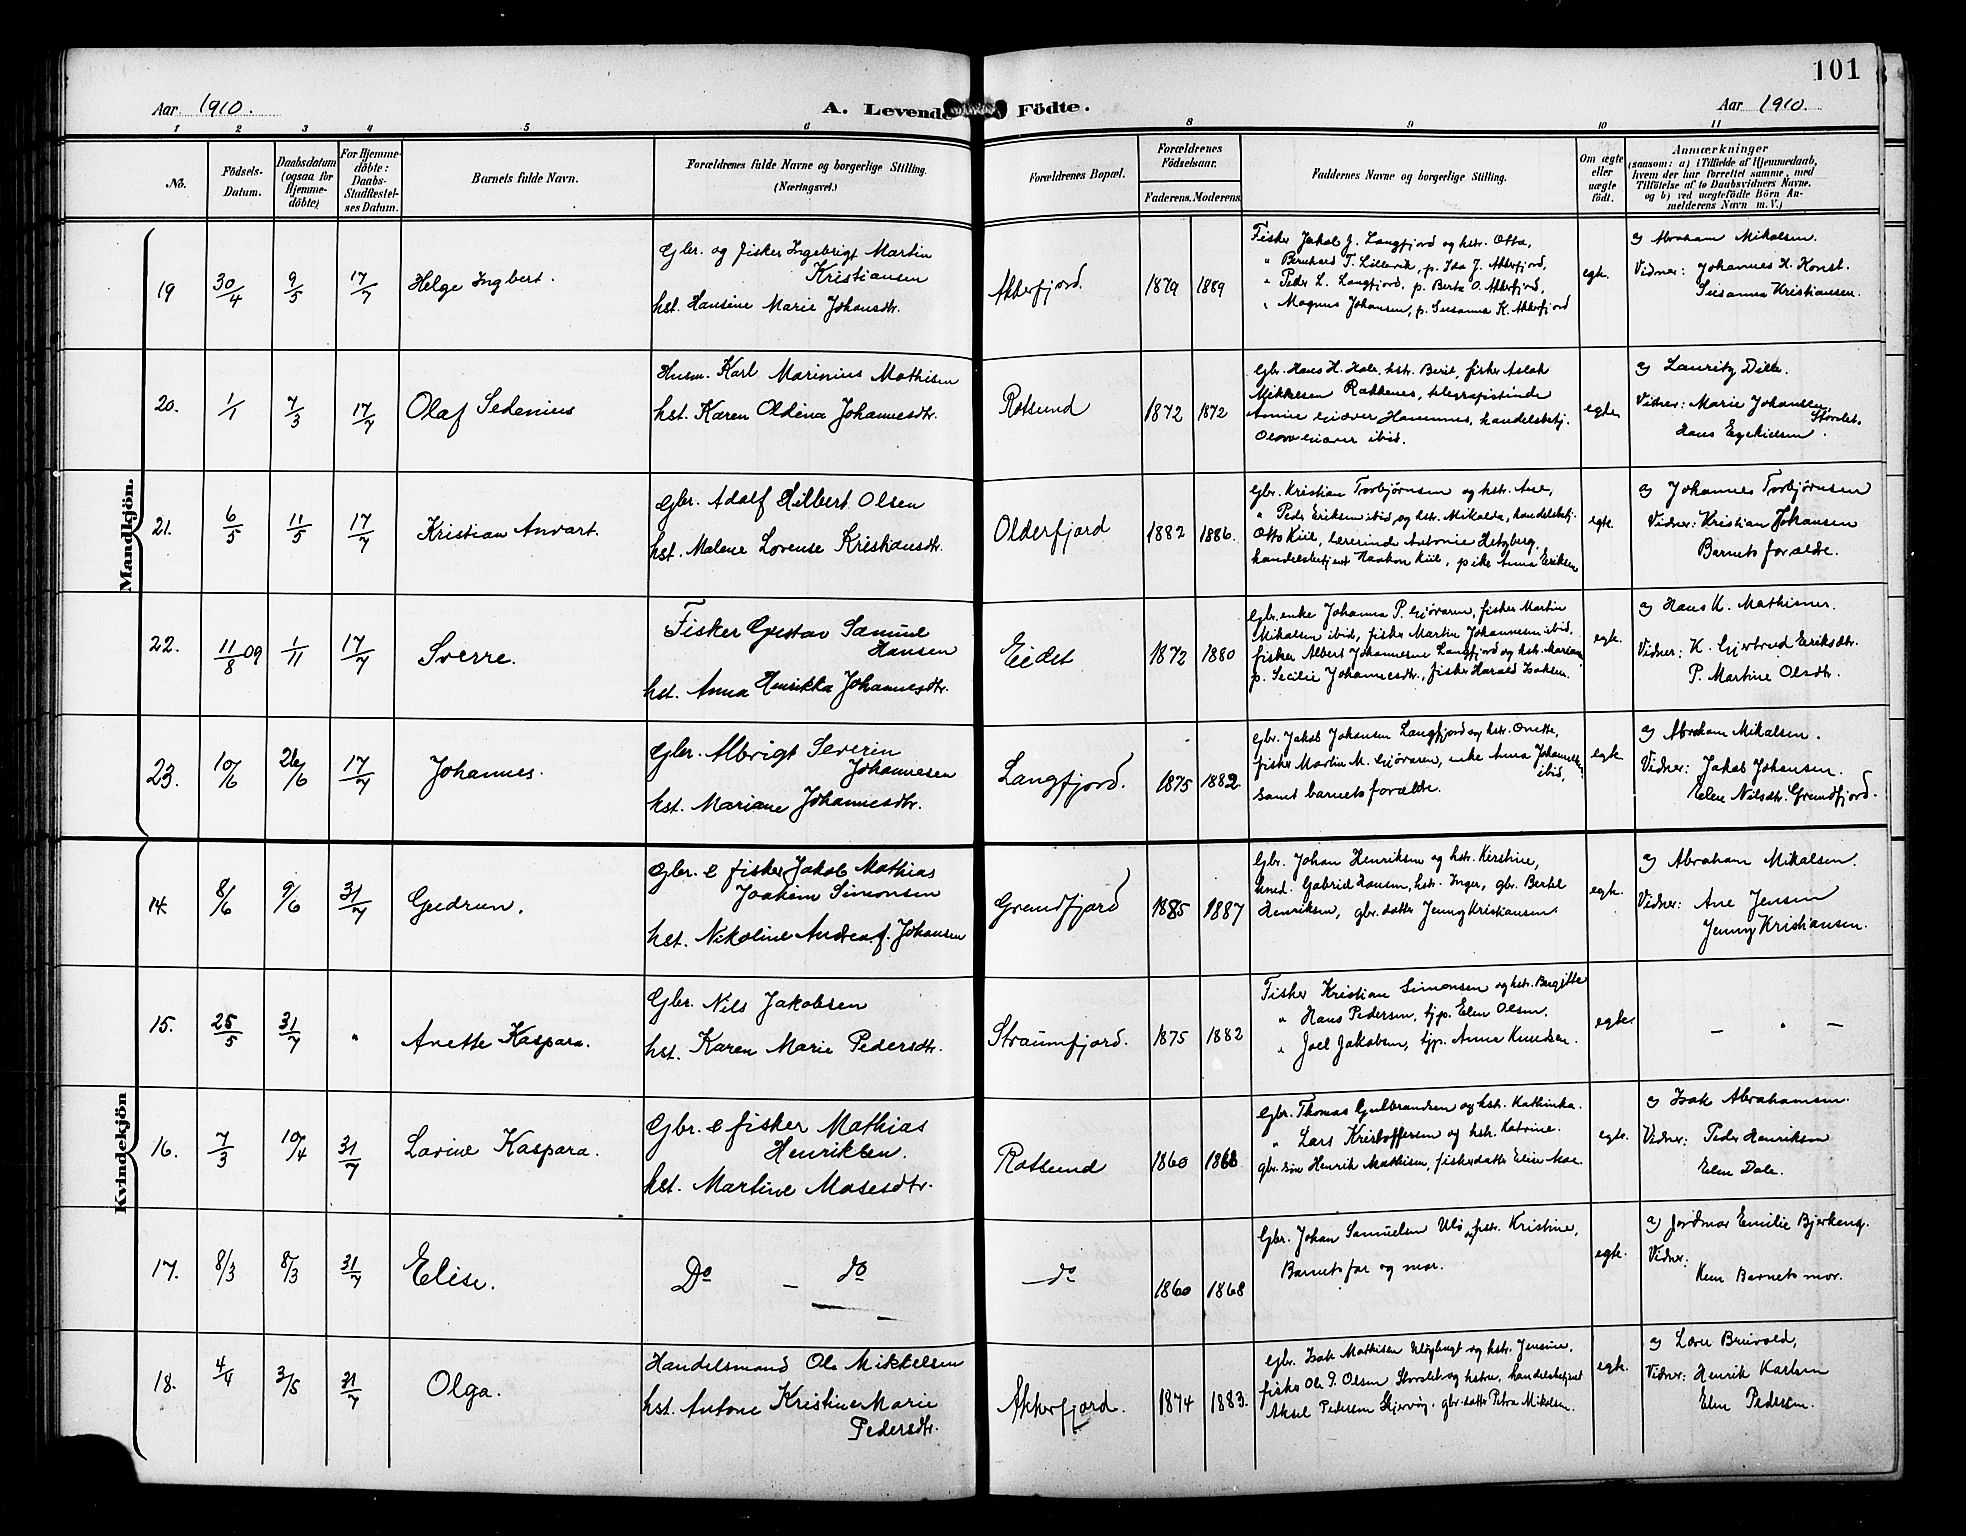 101
Aar 1910. A. Levende Födte. Aar 1910.
1 2 3 4 5 6 8 9 10 11
No.
Födsels-Datum.
Daabsdatum (ogsaa for Hjemme-döbte)
For Hjemme-döbte: Daabs-Stadfæstel-ses Datum.
Barnets fulde Navn.
Forældrenes fulde Navne og borgerlige Stilling.
(Næringsvei.)
Forældrenes Bopæl.
Forældrenes Födselsaar.
Faderens. Moderens.
Faddernes Navne og borgerlige Stilling.
Om ægte eller uægte födt.
Anmærkninger
(saasom: a) i Tilfælde af Hjemmedaab,
hvem der har forrettet samme, med
Tilföielse af to Daabsvidners Navne,
og b) ved uægtefödte Börn An-
melderens Navn m. V.)
Mandkjön.
19 30/4 9/5 17/7 Helge Ingbert.
Gbr. og fisker Ingebrigt Martin
Kristiansen
hst. Hansine Marie Johansdtr.
Akkerfjord 1879 1889
Fisker Jakob J. Langfjord og hstr. Otta,
" Bernhard T. Lillevik, p. Ida J. Akkerfjord,
" Peder L. Langfjord, p. Berta O. Akkerfjord,
" Magnus Johansen, p. Susanna K. Akkerfjord
egte.
a) Abraham Mikalsen.
Vidner: Johannes H. Konst.
Susanna Kristiansen.
20. 1/1 7/3 17/7 Olaf Sedenius
Husm. Karl Marinius Mathisen
hst. Karen Oldina Johannesdtr.
Rotsund 1872 1872
Gbr. Hans H. Hole, hstr. Berit, fisker Aslak
Mikkelsen telegrafistinde
Havnnes, handelsbetj.
ibid.
egte
a) Lauritz Dille.
Vidner: Marie Johansen
Storslet.
Hans Ezekielsen.
21. 6/5 11/5 17/7 Kristian Anvart.
Gbr. Adolf Hilbert Olsen
hst. Malene Lovense Kristiansdtr.
Olderfjord 1882 1886.
Gbr. Kristian Torbjørnsen og hstr. Ane,
" Peder Eriksen ibid, og hstr. Mikalda, handelsbetj.
Otto Kiil, lærerinde Antonie Hetzberg,
handelsbetjent Haakon Kiil, pike Anna Eriksen
egte.
a) Johannes Torbjørnsen
Vidner: Kristian Johansen
Barnets forældre.
22. 11/8 09 1/11 17/7 Sverre.
Fisker Gustav Samuel
Hansen
hst. Anna Henrikka Johannesdtr.
Eidet 1872 1880
Gbr. enke Johanna P. Gjøvaren, fisker Martin
Mikalsen ibid, fisker Martin Johannesen ibid,
fisker Albert Johannesen Langfjord og hstr. Mariane,
p. Secilie Johannesdtr., fisker Harald Isaksen.
egte.
a) Hans K. Mathisner.
Vidner: K. Gjertrud Eriksdtr.
P. Martine Olsdtr.
23. 10/6 26/6 17/7 Johannes.
Gbr. Albrigt Severin
Johannesen
hst. Mariane Johannesdtr.
Langfjord. 1875 1882
Gbr. Jakob Johansen Langfjord og hstr. Onette,
fisker Martin M. Gjøvaren, enke Anna Johannesen
ibid,
samt barnets forældre.
egte.
a) Abraham Mikalsen.
Vidner: Jakob Johansen.
Elen Nilsdtr. Grundfjord.
Kvindekjön
14. 8/6 9/6 31/7 Gudrun.
Gbr. & fisker Jakob Mathias
Joakim Simonsen
hst. Nikoline Andrea f. Johansen
Grundfjord 1885 1887
Gbr. Johan Henriksen og hstr. Kirstine,
hmd. Gabriel Hansen, hstr. Inger, gbr. Bertel
Henriksen, gbr. datter Jenny Kristiansen
egte.
a) Abraham Mikalsen.
Vidner: Ane Jensen
Jenny Kristiansen.
15. 25/5 31/7 " Anette Kaspara.
Gbr. Nils Jakobsen
hst. Karen Marie Pedersdtr.
Straumfjord. 1875 1882
Fisker Kristian Simonsen og hstr. Bergitte
" Hans Pedersen, tjp. Elen Olsen.
" Joel Jakobsen, tjp. Anna Knudsen.
egte.
— " —
16. 7/3 10/4 31/7 Lovine Kaspara.
Gbr. & fisker Mathias
Henriksen.
hst. Martine Mosesdtr.
Rotsund 1860 1868
Gbr. Thomas Gulbrandsen og hstr. Kathinka.
" Lars Kristoffersen og hstr. Katrine.
gbr. søn Henrik Mathisen, fiskerdatter Elise Moe.
egte.
a) Isak Abrahamsen.
Vidner: Peder Henriksen
Elen Dale.
17. 8/3 8/3 31/7 Elise.
Do — do
do 1860 1868
Gbr. Johan Samuelsen Ulø og hstr. Kristine,
Barnets far og mor.
egte.
a) Jordmor Emilie Bjerkeng.
Vidner:
Kun Barnets mor.
18. 4/4 3/5 31/7 Olga.
Handelsmand Ole Mikkelsen
hst. Antone Kristine Marie
Pedersdtr.
Akkerfjord. 1874 1883.
Gbr. Isak Mathisen og hstr. Jensine,
fisker Ole P. Olsen Storslet og hstru, handelsbetjent
Aksel Pedersen Skjervøy, gbr. datter Petra Mikalsen.
egte.
a) Lærer Breivold,
Vidner: Henrik Karlsen
Elen Pedersen.